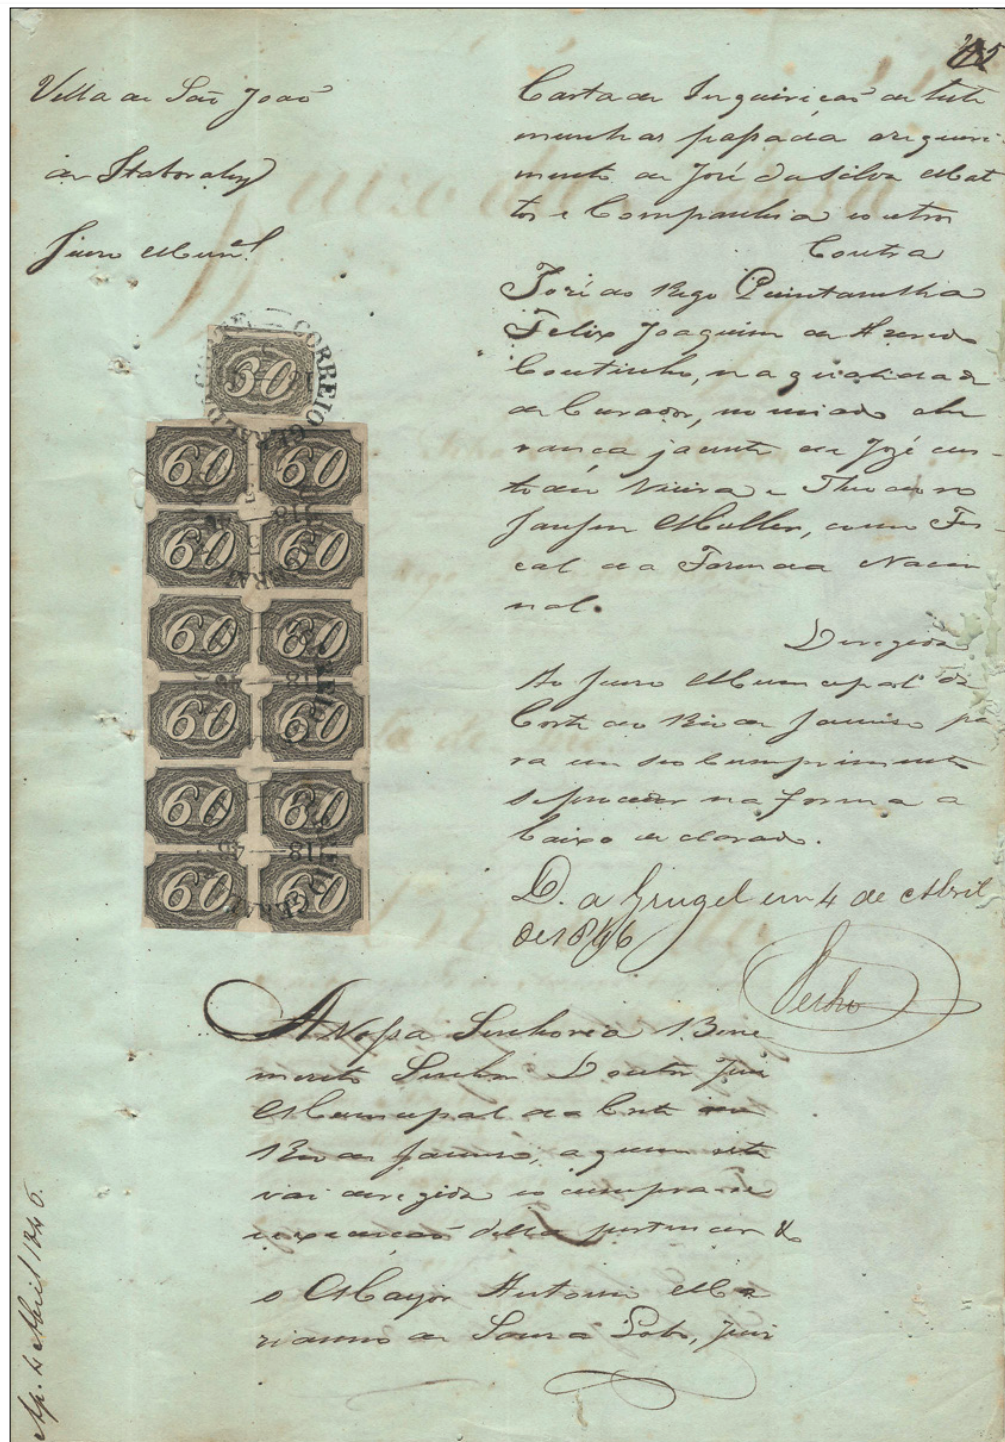 Villa de São João
de Itaborahy
Juizo Mun.al
Carta de Inquirição de teste
munhas passada a requeri-
mento de José da Silva Mat
tos e Companhia e outros
Contra
José do Rego Quintanilha
Felix Joaquim de
Coutinho, na qualidade
de Curador, nomiado a he
rança jacente de José Cus-
todio Vieira e Theodoro
Jansen Muller, como Fis
cal da Fazenda Nacio
nal.
Deregida
Ao Juizo Municipal da
Corte do Rio de Janeiro pa
ra em seo Cumprimento
se proceder na forma a
baixo declarado.
CORREIO GERAL DA CORTE
30
60 60
60 60
60 60
60 60
60 60
60 60
D. a Gurgel em 4 de Abril
de 1846
A Vossa Senhoria Bene
merito Senhor Doutor Juiz
Municipal da Corte do
Rio de Janeiro, a quem esta
vai deregida e o cumpra-se
e execução della pertencer &
o Mayor Antonio Ma
rianno de Souza Lobo, Juiz
Ap. 4 Abril 1846.